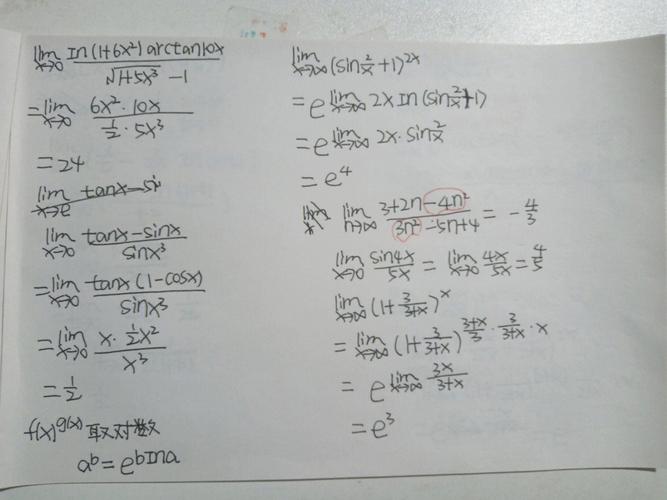 lim x→0 ln(1+6x²) arctan10x / √(1+5x³) - 1
= lim x→0 6x²·10x / ½·5x³
= 24
lim x→e tanx - si
lim x→0 tanx - sinx / sinx³
= lim x→0 tanx(1-cosx) / sinx³
= lim x→0 x·½x² / x³
= ½
f(x)^g(x) 取对数
a^b = e^(b ln a)
lim x→∞ (sin 2/x + 1)^2x
= e^lim x→∞ 2x ln(sin 2/x + 1)
= e^lim x→∞ 2x·sin 2/x
= e⁴
lim n→∞ 3+2n-4n² / 3n²-5n+4 = -4/3
lim x→0 sin4x / 5x = lim x→0 4x / 5x = 4/5
lim x→∞ (1+ 3/3+x)^x
= lim x→∞ (1+ 3/3+x)^(3+x/3 · 3/3+x · x)
= e^lim x→∞ 3x/3+x
= e³